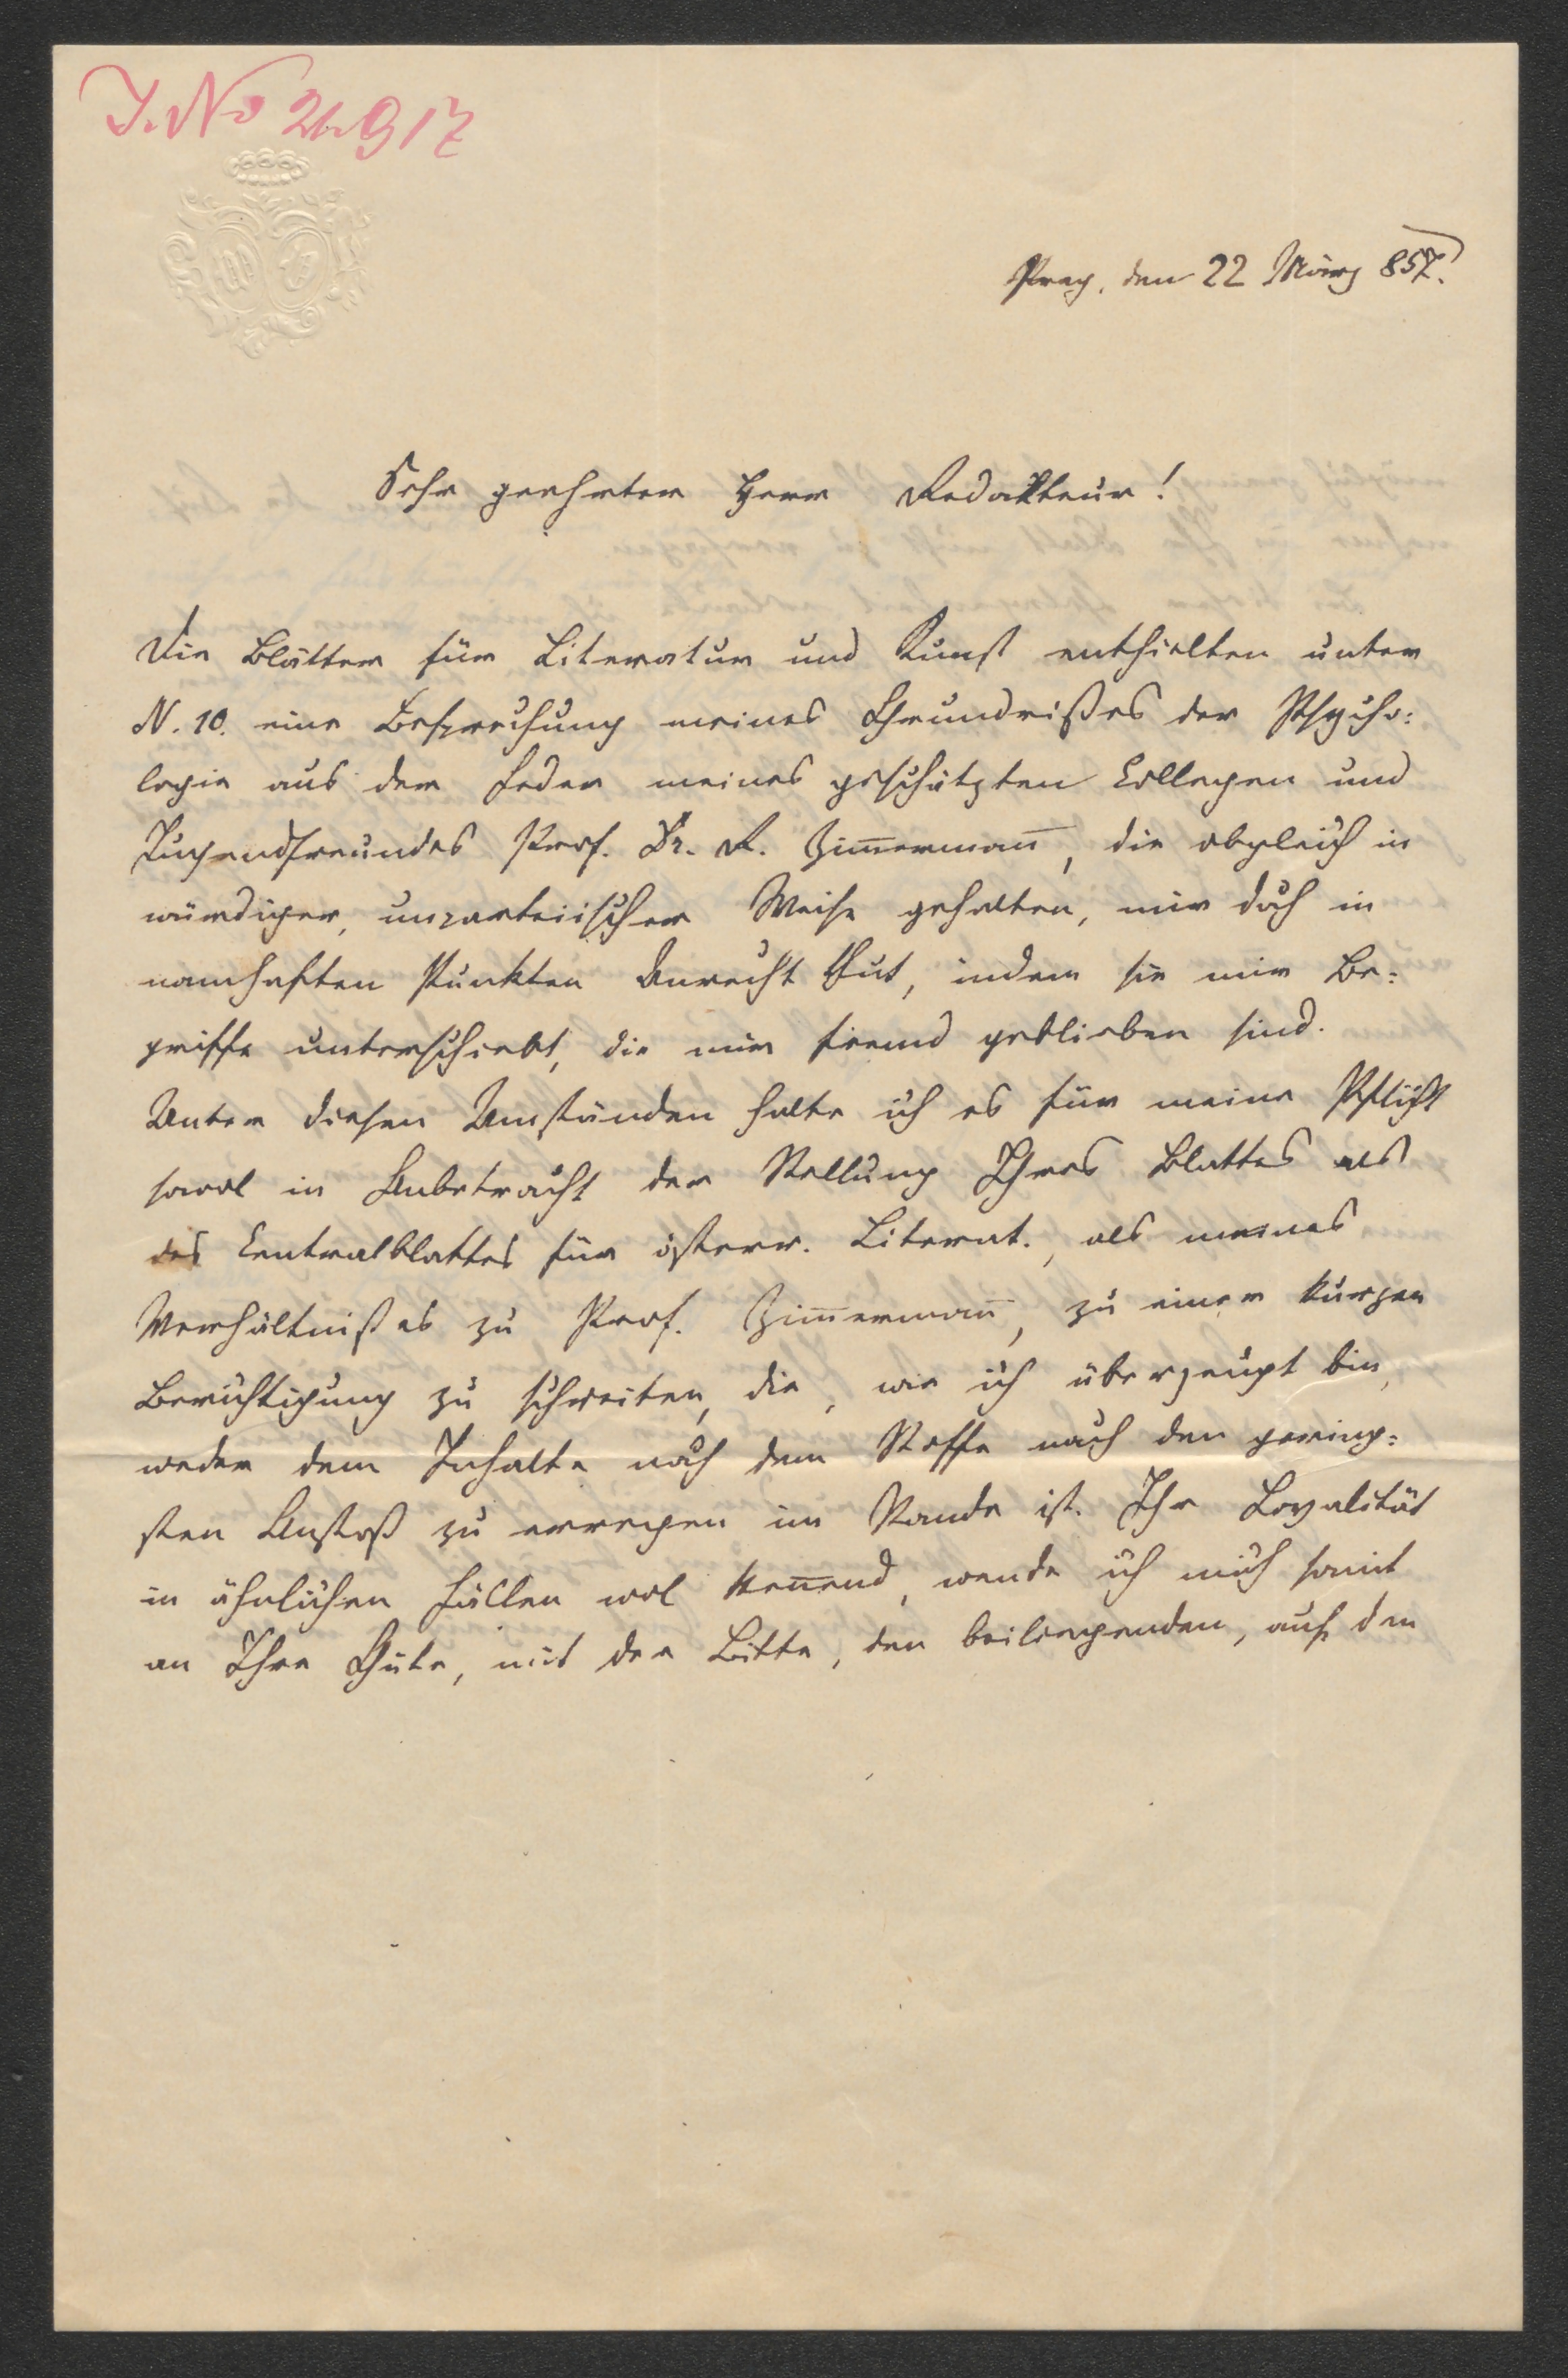 J. No 24917
Prag, den 22 März 857.
Sehr geehrter Herr Redakteur!
Die Blätter für Literatur und Kunst enthielten unter
N. 10. eine Besprechung meines Grundrißes der Psycho:
logie aus der Feder meines geschätzten Collegen und
Jugendfreundes Prof. Dr. R. Zim̅erman̅, die obgleich in
würdiger, unparteiischer Weise gehalten, mir doch in
namhaften Punkten Unrecht thut, indem sie mir Be:
griffe unterschiebt, die mir fremd geblieben sind.
Unter diesen Umständen halte ich es für meine Pflicht
sowol in Anbetracht der Stellung Ihres Blattes als
des Centralblattes für österr. Literat., als meines
Verhältnißes zu Prof. Zim̅erman̅, zu einer kurzen
Berichtigung zu schreiten, die, wie ich überzeugt bin,
weder dem Inhalte noch dem Stoffe nach den gering:
sten Anstoß zu erregen im Stande ist. Ihre Loyalität
in ähnlichen Fällen wol ken̅end, wende ich mich somit
an Ihre Güte, mit der Bitte, den beiliegenden, auf den